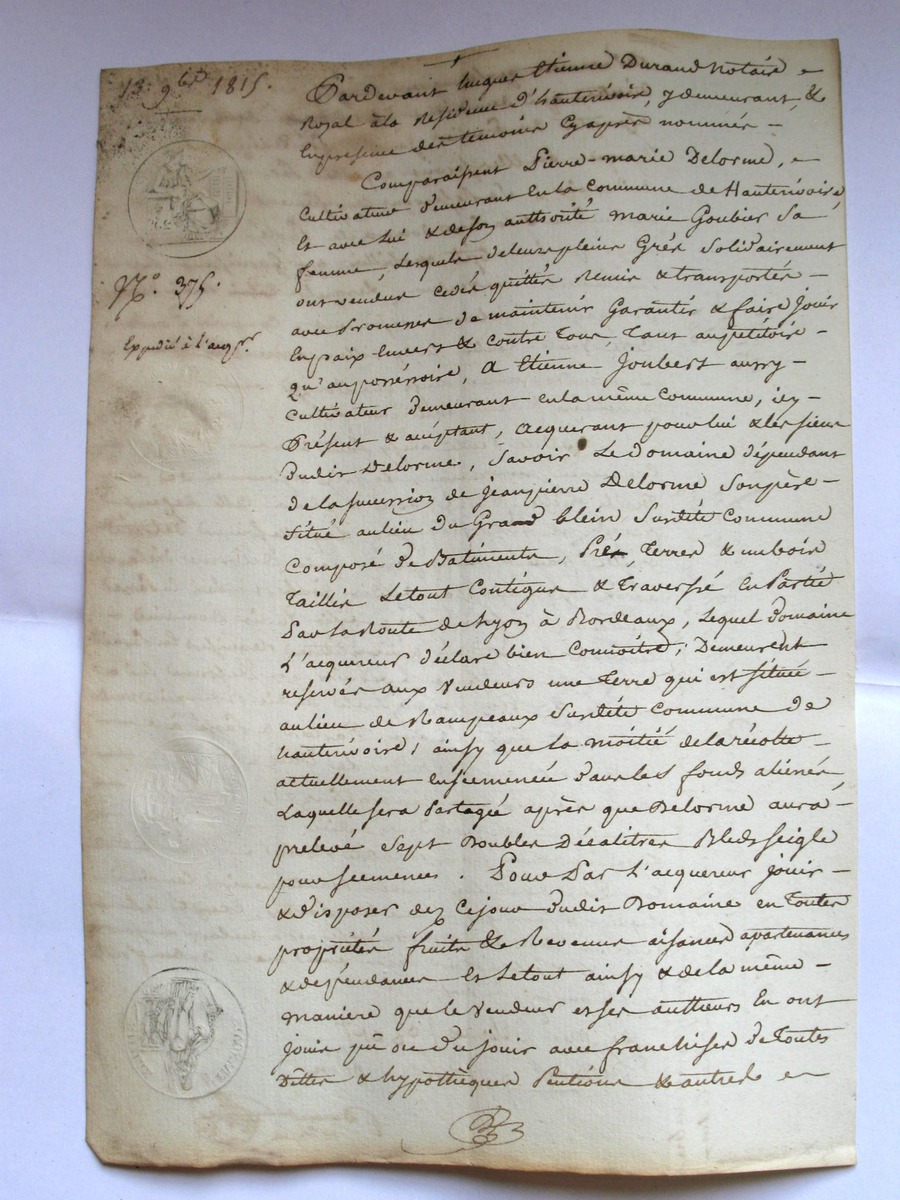 13 9bre 1815.
N.o 375.
Expedié à l'acqr.
Pardevant hugues Etienne Durand Notaire
Royal àla Residence d'hauterivoire, y demeurant, &
Enpresence des temoins Cyaprès nommés
Comparaissent Pierre-marie Delorme,
Cultivateur demeurant En la Commune de Hauterivoire
Et avec lui & deson authorité marie Goubier Sa
femme, Lesquels deleurs pleins Grés Solidairement
ont vendus cedés quittés Remis & transportés
avec Promesse de maintenir Garantir & faire Jouir
En paix Envers & contre Tous, Tant aupétitoire
qu'aupossessoire, A Etienne Joubert aussy
Cultivateur demeurant enla même Commune, icy
Présent & acceptant, acquerant pour lui & les siens
dudit Delorme, Savoir Le Domaine dépendant
de la succession de Jeanpierre Delorme Sonpère
Situé aulieu du Grand blein Surdite Commune
Composé de Batiments, Prés, Terres & un bois
Taillis Le tout Contigue & Traversé En Partie
Par la Route de Lyon à Bordeaux, Lequel Domaine
L'acquereur déclare bien Connoitre; Demeurent
reservés aux Vendeurs une Terre qui est située
aulieu de Rampeaux Surdite Commune de
hauterivoire, ainsy que la moitié dela récolte
actuellement ensemencée dans les fonds aliénés
Laquelle sera Partagée après que Delorme aura
prelevé Sept Doubles Décalitres Bleds seigle
pour semences. Pour Par L'acquereur Jouir
& disposer dez Cejour dudit Domaine en Toutes
propriétés fruits & Revenus aisances apartenances
& dépendances Et Le tout ainsy & de la même
maniere que le Vendeur et ses autheurs En ont
Jouis pû ou dû jouir avec franchises de Toutes
Dettes & hypothèques Pentions & autres